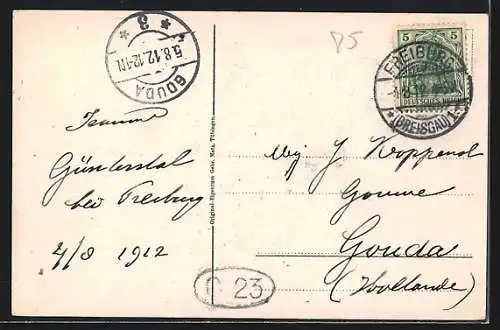 5
5
FREIBURG
(BREISGAU) 1.
* 3 *
5.8.12.12-1N.
GOUDA
85
Jeanne
Günterstal
bei Freiburg
4/8 1912
Original-Eigentum Gebr. Metz, Tübingen.
Mej J.
Gouwe
Gouda
(Hollande)
C 23